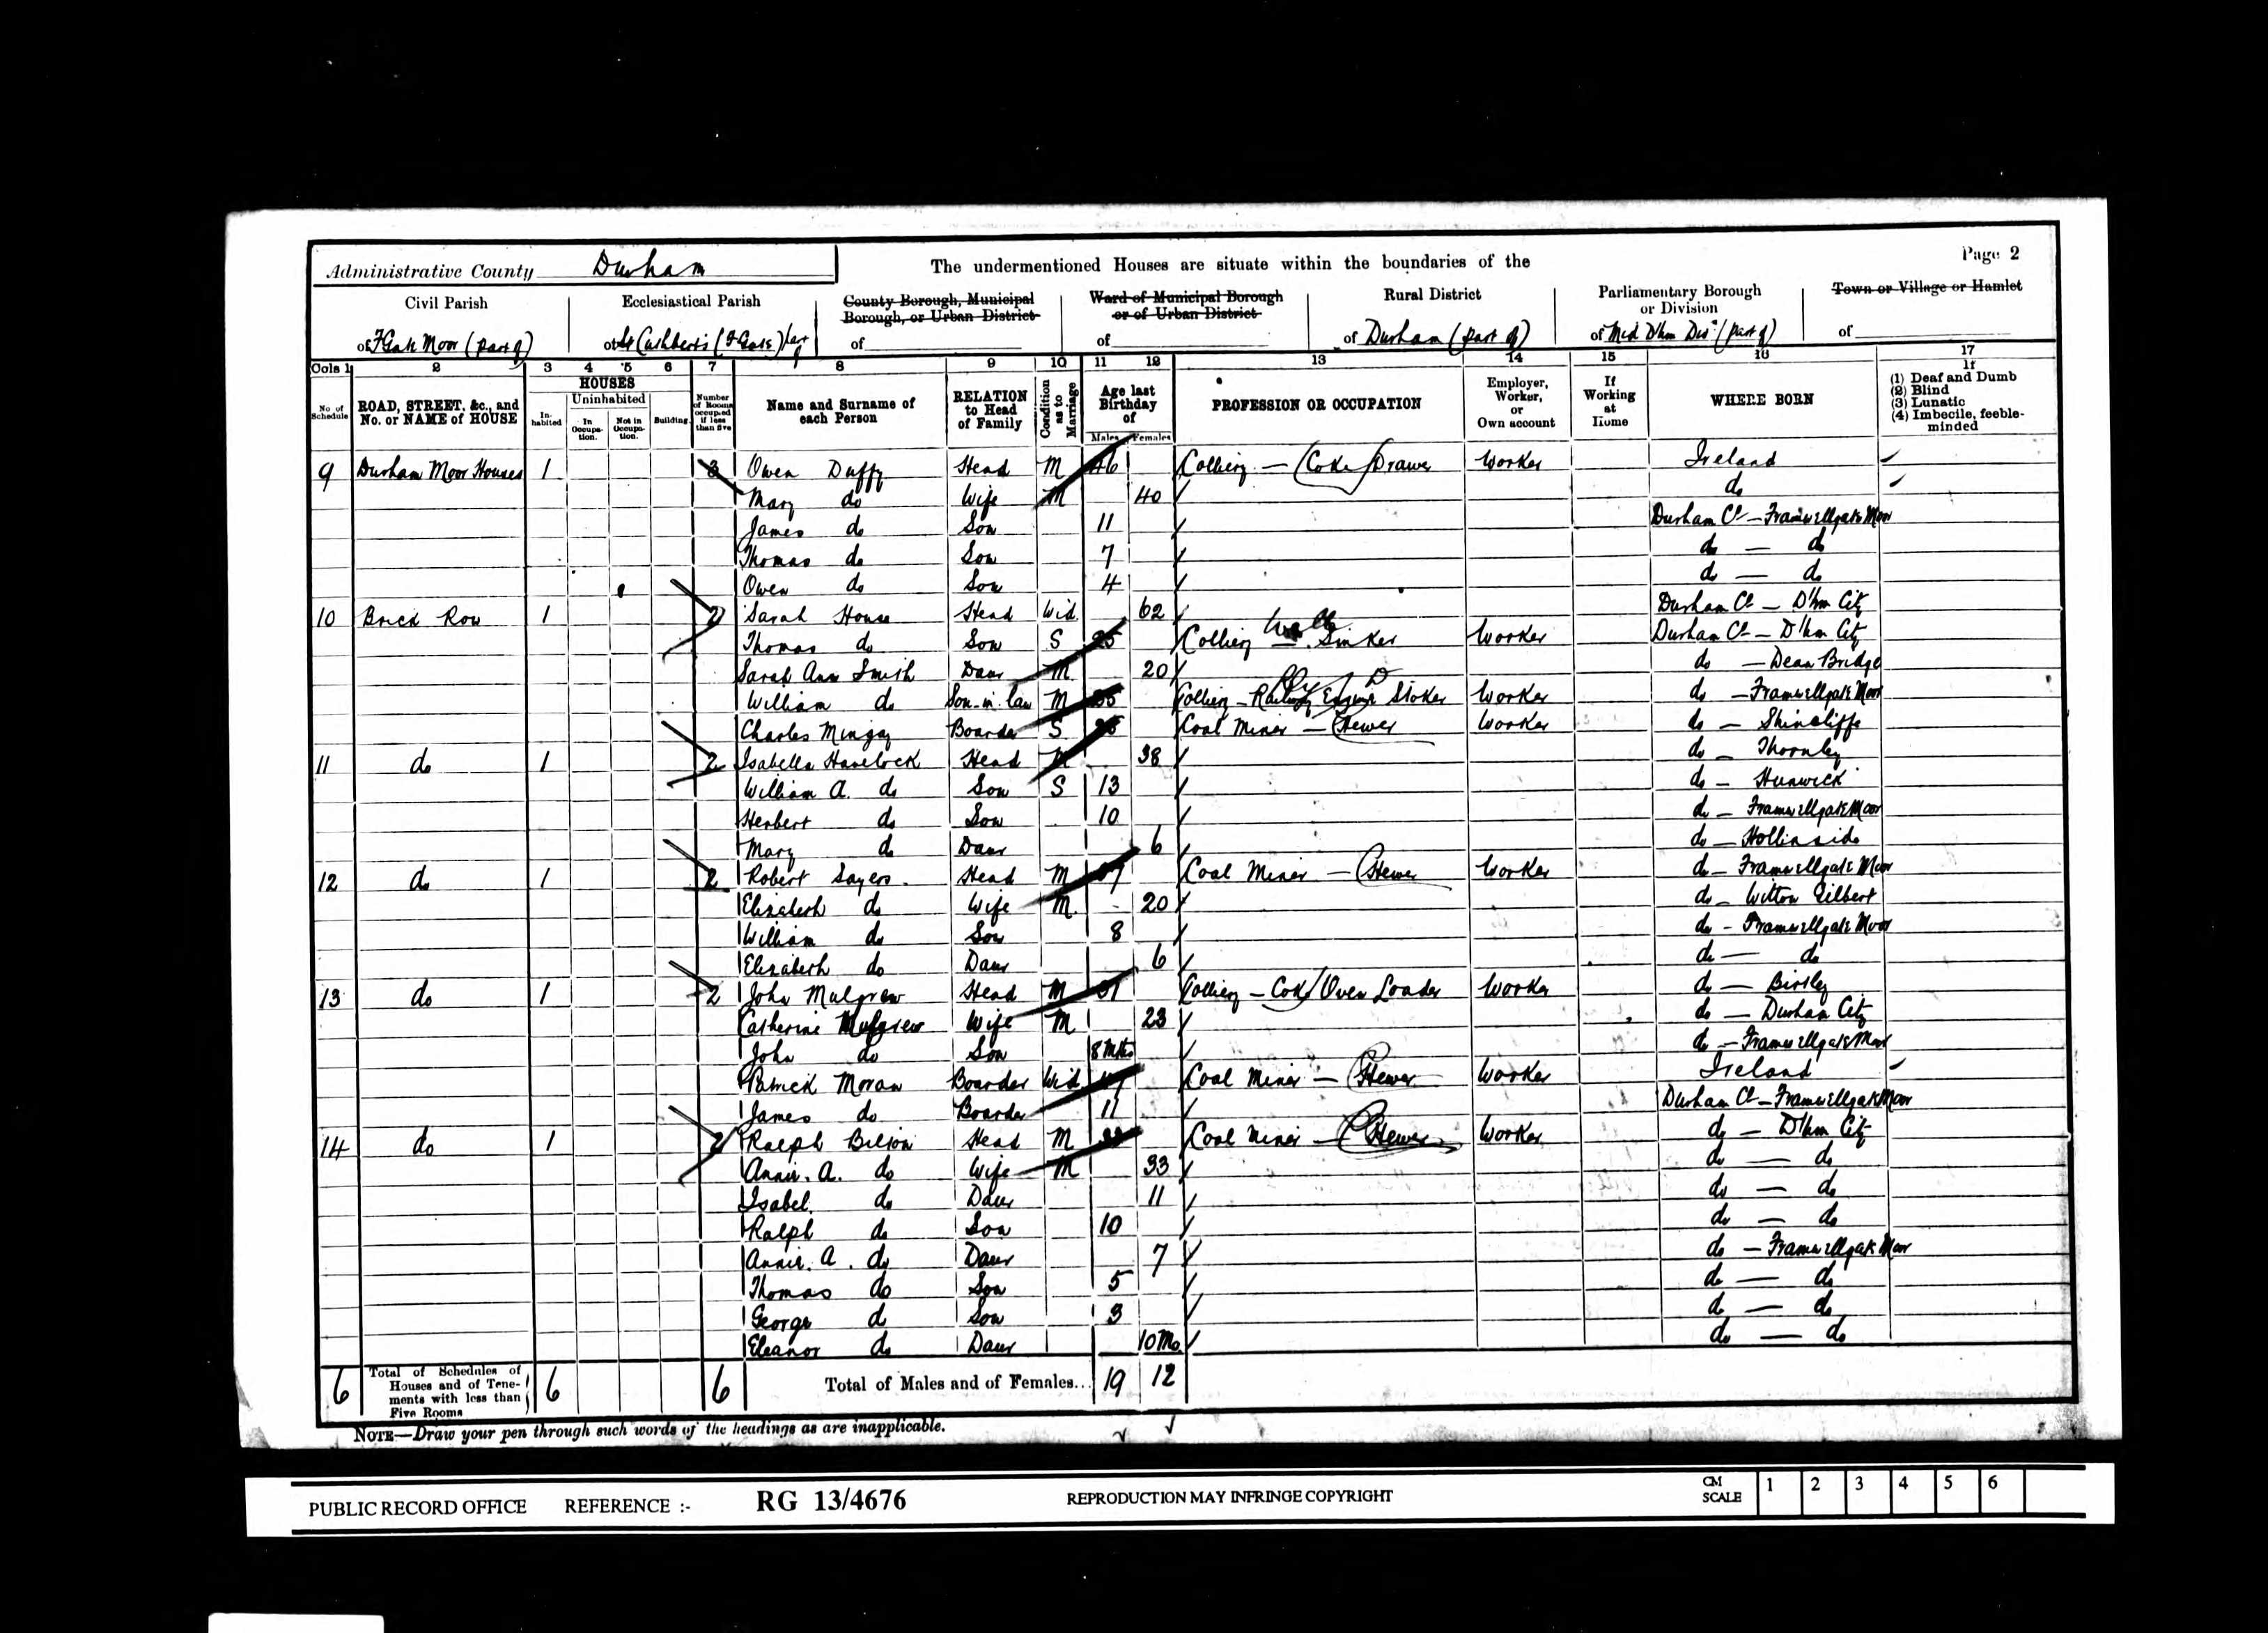 Page 2
Administrative County Durham
The undermentioned Houses are situate within the boundaries of the
Civil Parish
of FGate Moor (part of)
Ecclesiastical Parish
of St Cuthberts (F Gate) part of
County Borough, Municipal Borough, or Urban District
of
Ward of Municipal Borough or of Urban District
of
Rural District
of Durham (part of)
Parliamentary Borough or Division
of Mid D'hm Div (part of)
Town or Village or Hamlet
of
Cols 1 2 3 4 5 6 7 8 9 10 11 12 13 14 15 16 17
No of Schedule
ROAD, STREET, &c., and No. or NAME of HOUSE
HOUSES
Inhabited
Uninhabited
In Occupation.
Not in Occupation.
Building
Number of Rooms occupied if less than five
Name and Surname of each Person
RELATION to Head of Family
Condition as to Marriage
Age last Birthday of
Males Females
PROFESSION OR OCCUPATION
Employer, Worker, or Own account
If Working at Home
WHERE BORN
If
(1) Deaf and Dumb
(2) Blind
(3) Lunatic
(4) Imbecile, feeble-minded
9 Durham Moor Houses 1 3 Owen Duffy Head M 46 Colliery — Coke Drawer Worker Ireland
Mary do Wife M 40 do
James do Son 11 Durham Co — Framwellgate Moor
Thomas do Son 7 do — do
Owen do Son 4 do — do
10 Brick Row 1 2 Sarah House Head Wid 62 Durham Co — D'hm City
Thomas do Son S 25 Colliery — Sinker Worker Durham Co — D'hm City
Sarah Ann Smith Daur M 20 do — Dean Bridge
William do Son-in-law M Colliery — Railway Engine Stoker Worker do — Framwellgate Moor
Charles Mingay Boarder S Coal Miner — Hewer Worker do — Shincliffe
11 do 1 2 Isabella Havelock Head M 38 do — Thornley
William A. do Son S 13 do — Hunwick
Herbert do Son 10 do — Framwellgate Moor
Mary do Daur 6 do — Hollinside
12 do 1 2 Robert Sayers Head M Coal Miner — Hewer Worker do — Framwellgate Moor
Elizabeth do Wife M 20 do — Witton Gilbert
William do Son 8 do — Framwellgate Moor
Elizabeth do Daur 6 do — do
13 do 1 2 John Mulgrew Head M 31 Colliery — Coke Oven Loader Worker do — Birtley
Catherine Mulgrew Wife M 23 do — Durham City
John do Son 8 Mths do — Framwellgate Moor
Patrick Moran Boarder Wid Coal Miner — Hewer Worker Ireland
James do Boarder 11 Durham Co — Framwellgate Moor
14 do 1 2 Ralph Bilton Head M 33 Coal Miner — Hewer Worker do — D'hm City
Annie. A. do Wife M 33 do — do
Isabel. do Daur 11 do — do
Ralph do Son 10 do — do
Annie. A. do Daur 7 do — Framwellgate Moor
Thomas do Son 5 do — do
George do Son 3 do — do
Eleanor do Daur 10 Mo do — do
6 Total of Schedules of Houses and of Tenements with less than Five Rooms 6 6 Total of Males and of Females... 19 12
NOTE—Draw your pen through such words of the headings as are inapplicable.
PUBLIC RECORD OFFICE REFERENCE :- RG 13/4676 REPRODUCTION MAY INFRINGE COPYRIGHT CM SCALE 1 2 3 4 5 6